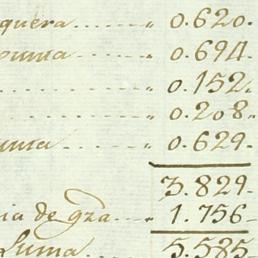 quera...... „ 0.620.
Suma...... „ 0.694
......... „ 0.152.
......... „ 0.208.
uma...... „ 0.629.
3.829.
ia de gza... „ 1.756
Suma.. 5.585